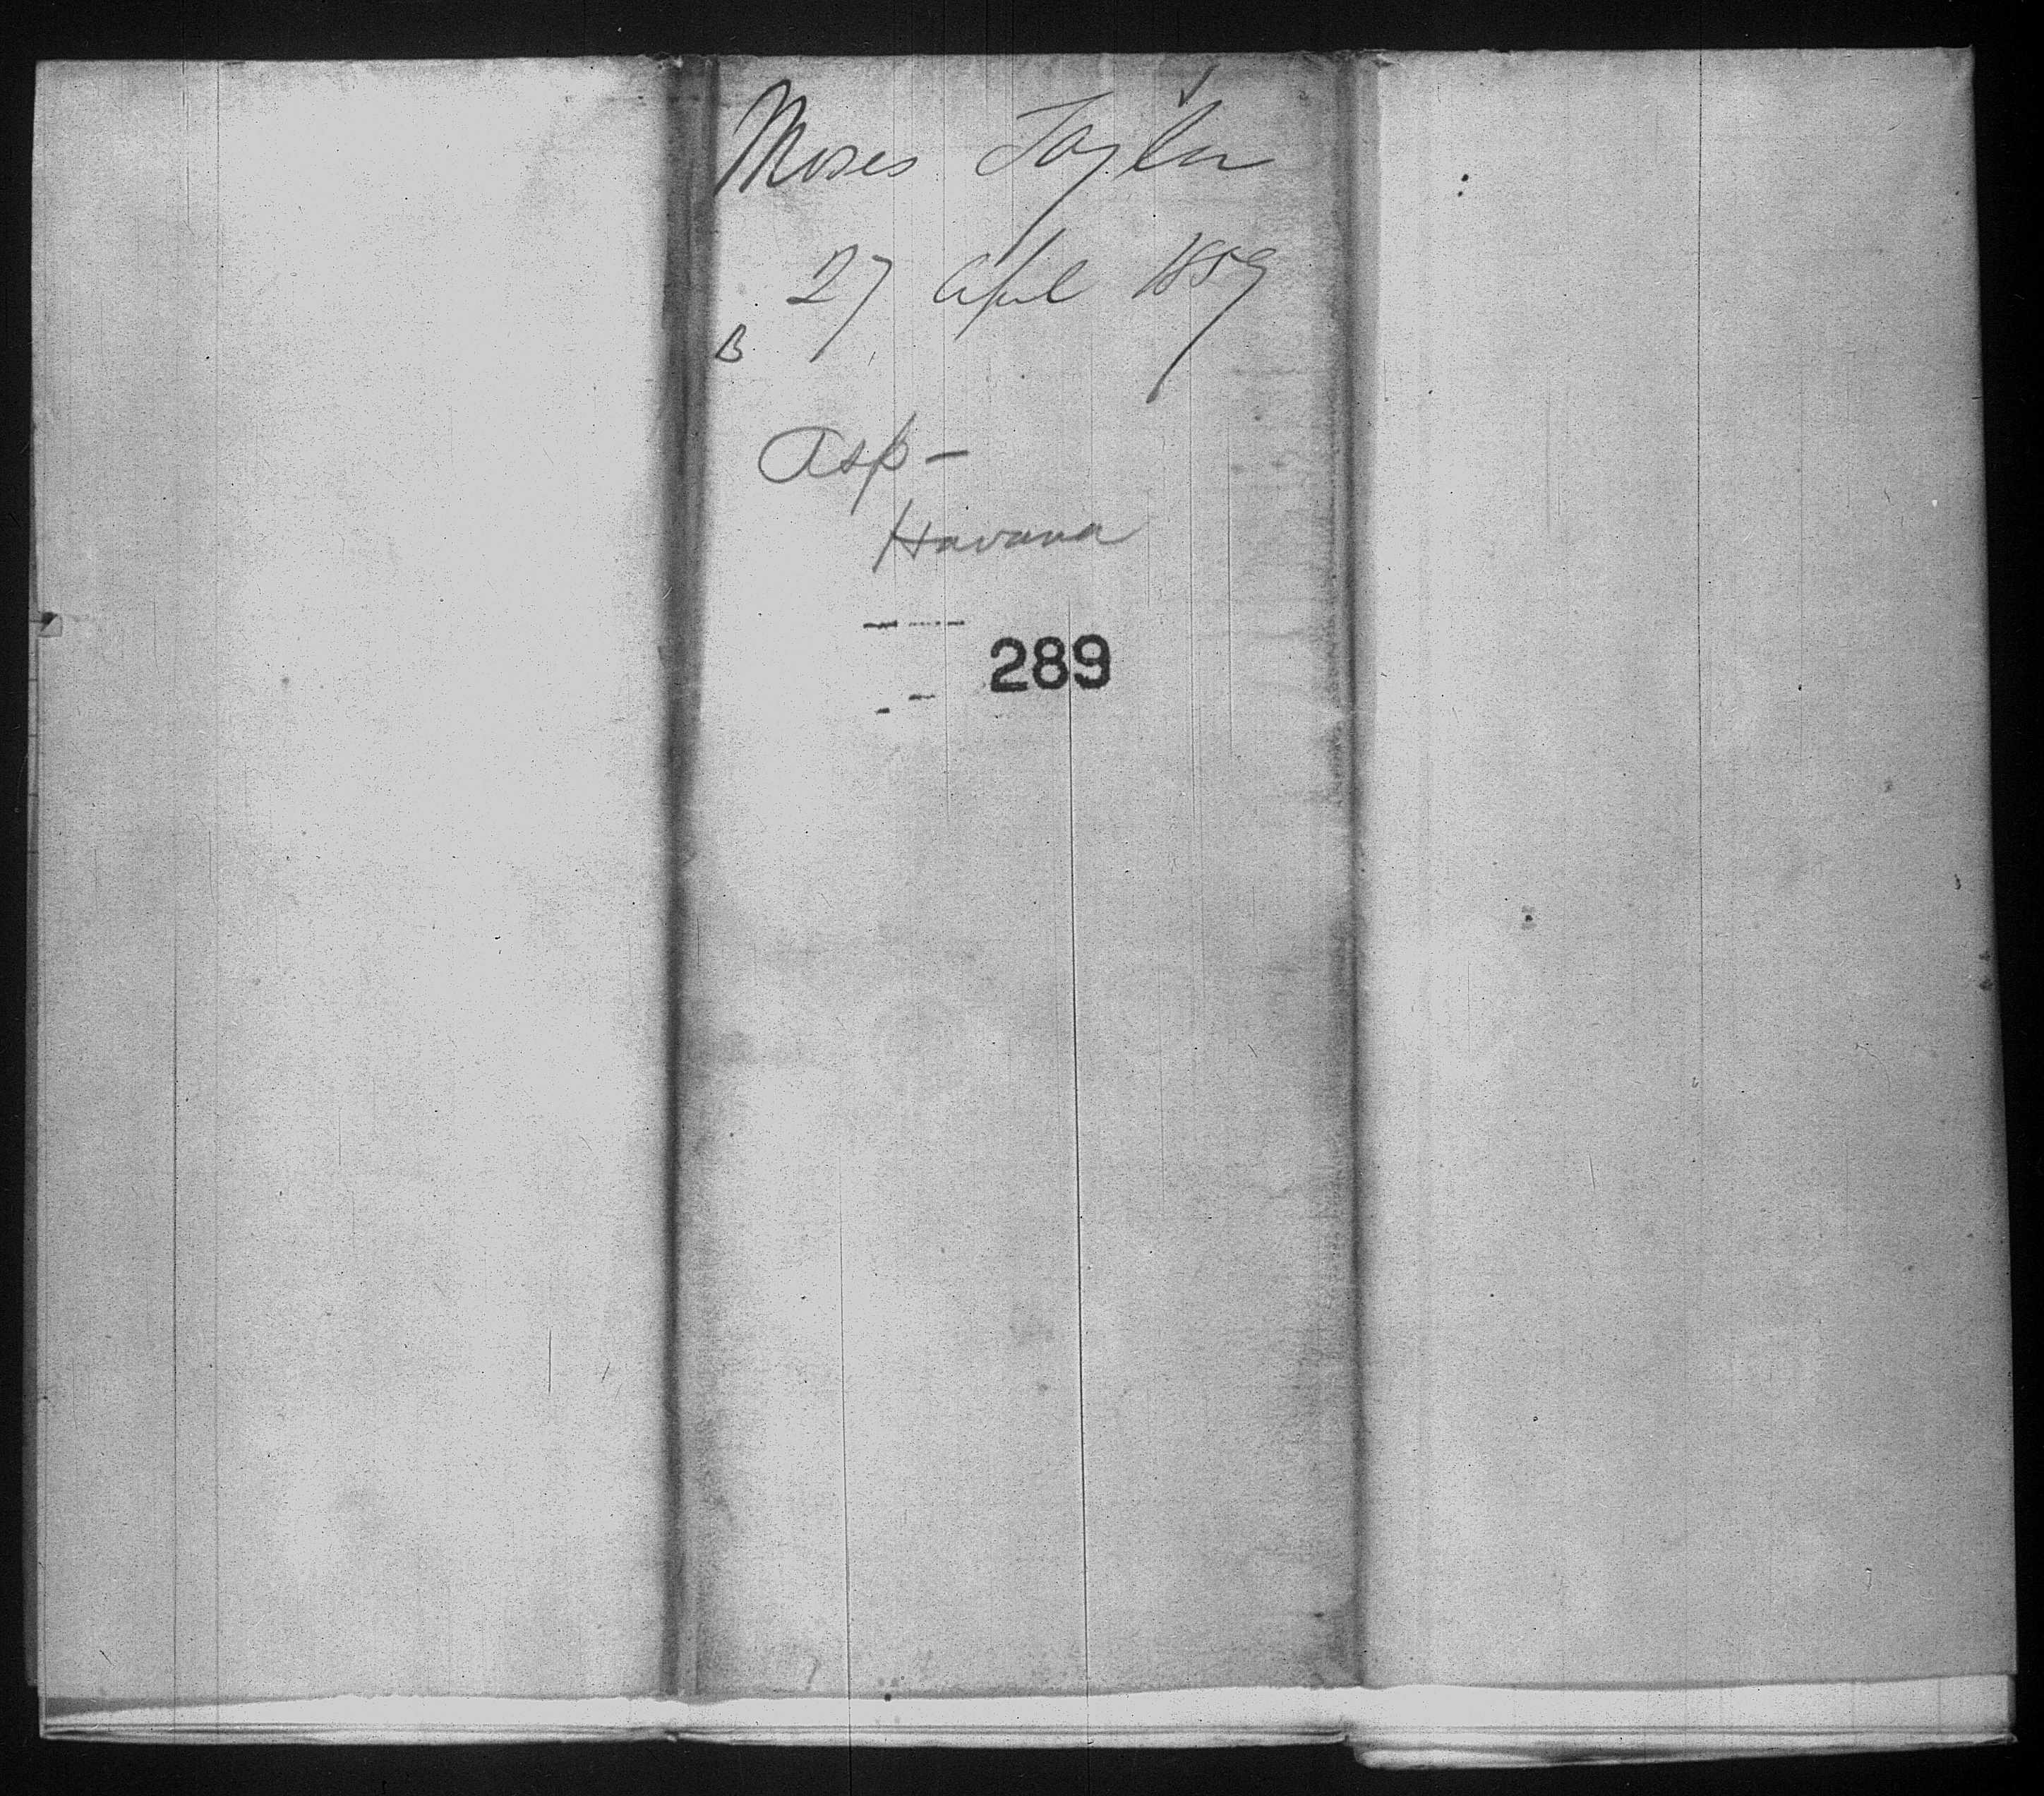 Moses Taylor
27 April 1859
B
Asp-
Havana
289